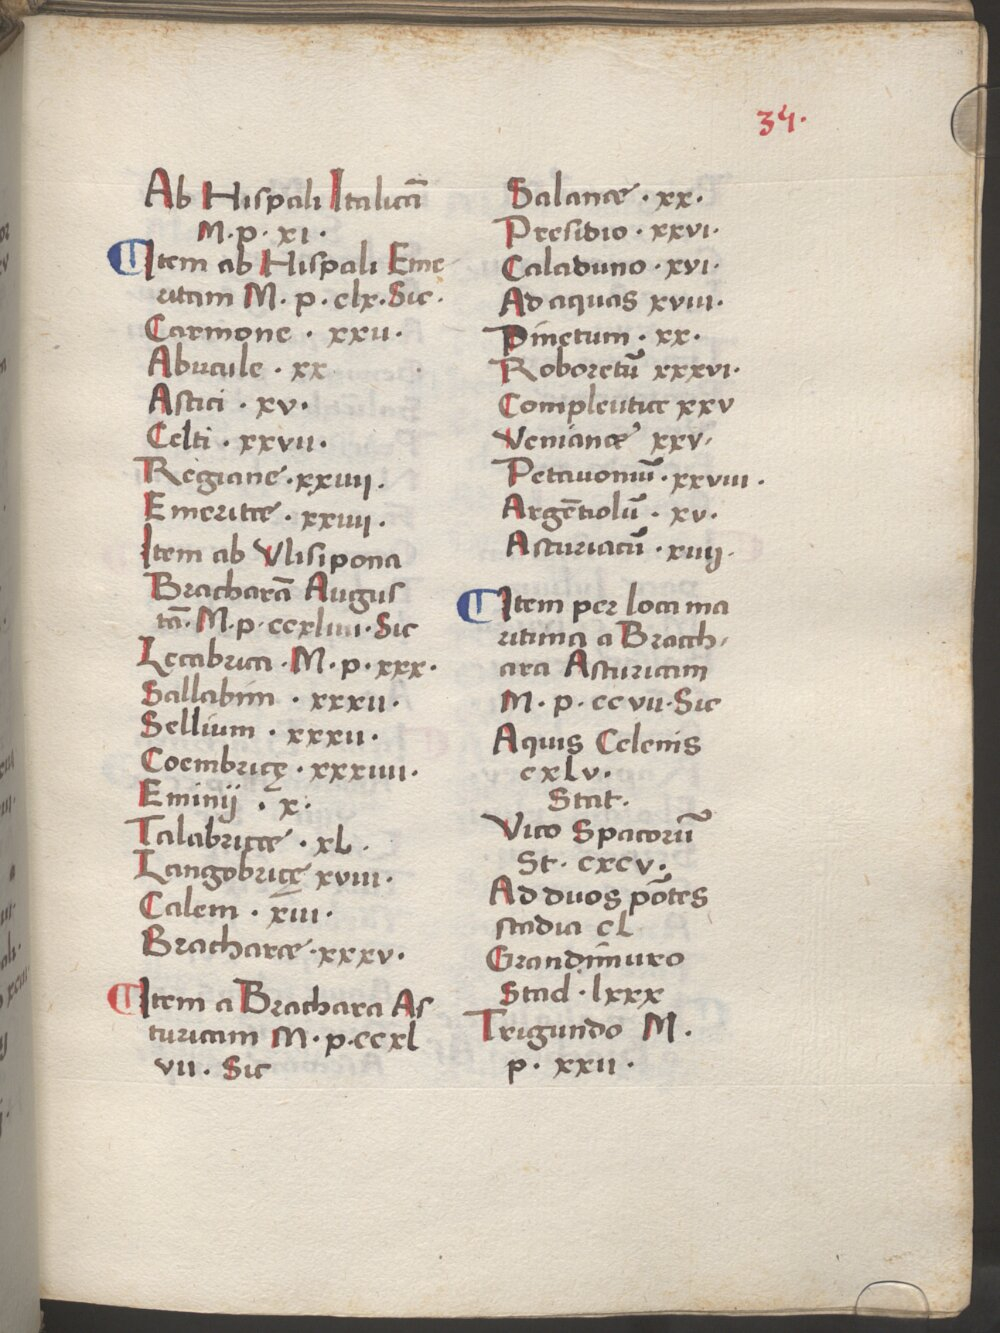 34.
Ab Hispali Italicā
M. p. xi.
Item ab Hispali Eme
ritam M. p. clx. Sic.
Carmone. xxii.
Abucule. xx
Astici. xv.
Celti. xxvii.
Regiane. xxiiij.
Emeritæ. xxiiij.
Item ab Vlisipona
Bracharā Augus
tā. M. p. ccxliiii. Sic
Lecabrica. M. p. xxx.
Sallabim. xxxii.
Sellium. xxxii.
Coembricę. xxxiiii.
Eminij. x.
Talabricæ. xL.
Langobricę xviii.
Calem. xiii.
Bracharæ. xxxv.
Item a Brachara As
turicam M. p. ccxl
vii. Sic
Salanæ. xx.
Presidio. xxvi.
Caladuno. xvi.
Ad aquas xviii.
Pinetum. xx.
Roboretū xxxvi.
Compleuticæ xxv
Venianæ xxv.
Petauoniū. xxviii.
Argētiolū. xv.
Asturiacū. xiiij.
Item per loca ma
ritima a Bracch-
ara Asturicam
M. p. ccvii. Sic
Aquis Celenis
cxLv.
Stat.
Vico Spacorū
St. cxcv.
Ad duos pōtes
stadia cL
Grandimuro
Stad. lxxx
Trigundo M.
p. xxii.